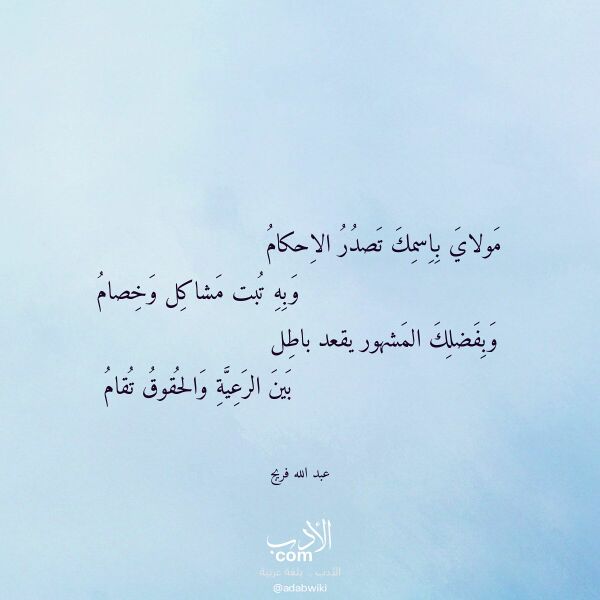 مَولايَ بِاِسمِكَ تَصدُرُ الاِحكامُ
وَبِهِ تُبت مَشاكِل وَخِصامُ
وَبِفَضلِكَ المَشهور يقعد باطِل
بَينَ الرَعِيَّةِ وَالحُقوقُ تُقامُ
عبد الله فريج
الأدب
com
الأدب .. بلغة عربية
@adabwiki